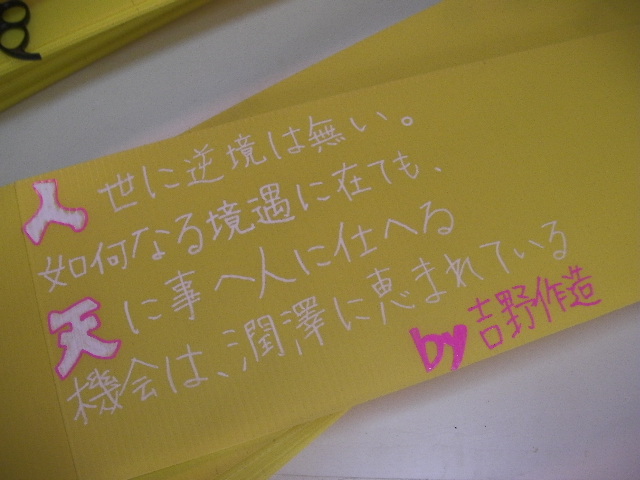 人世に逆境は無い。
如何なる境遇に在ても、
天に事へ人に仕へる
機会は、潤澤に恵まれている
by吉野作造